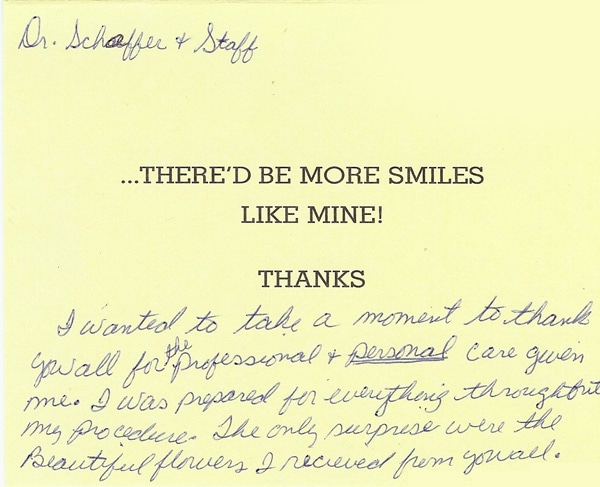 Dr. Schaffer + Staff
...THERE'D BE MORE SMILES
LIKE MINE!
THANKS
I wanted to take a moment to thank
you all for the professional + personal care given
me. I was prepared for everything throughout
my procedure. The only surprise were the
Beautiful flowers I recieved from you all.